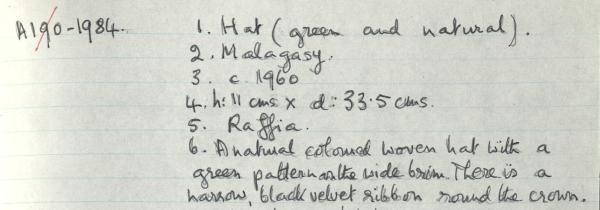 A190-1984. 1. Hat (green and natural).
2. Malagasy.
3. c. 1960
4. h: 11 cms x d: 33.5 cms.
5. Raffia.
6. A natural coloured woven hat with a
green pattern on the wide brim. There is a
narrow, black velvet ribbon round the crown.